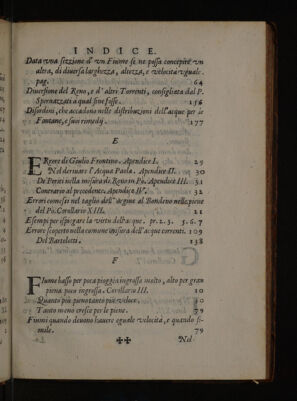 INDICE.
Data una sezzione d' un Fiume se ne possa concepire un
altra, di diversa larghezza, altezza, e velocità uguale.
pag. 64
Diversione del Reno, e d' altri Torrenti, consigliata dal P.
Spernazzati a qual fine fosse. 156
Disordini, che accadono nelle distributioni dell'acque per le
Fontane, e suoi rimedij. 177
E
ERrore di Giulio Frontino. Appendice I. 29
Nel derivare l'Acqua Paola. Appendice II. 30
De Periti nella misura di Reno in Pò. Appendice III. 31
Contrario al precedente. Appendice IV. 32
Errori comessi nel taglio dell' argine al Bondeno nelle piene
del Pò. Corollario XIII. 21
Essempi per ispiegar la virtù dell'acque. pr. 2. 3. 5. 6. 7
Errore scoperto nella comune misura dell'acque correnti. 109
Del Bartolotti. 138
F
FIume basso per poca pioggia ingrossa molto, alto per gran
piena poco ingrossa. Corollario III. 10
Quanto più pieno tanto più veloce. 10
Tanto meno cresce per le piene. 79
Fiumi quando devono havere eguale velocità, e quando si-
mile. 79
Nel